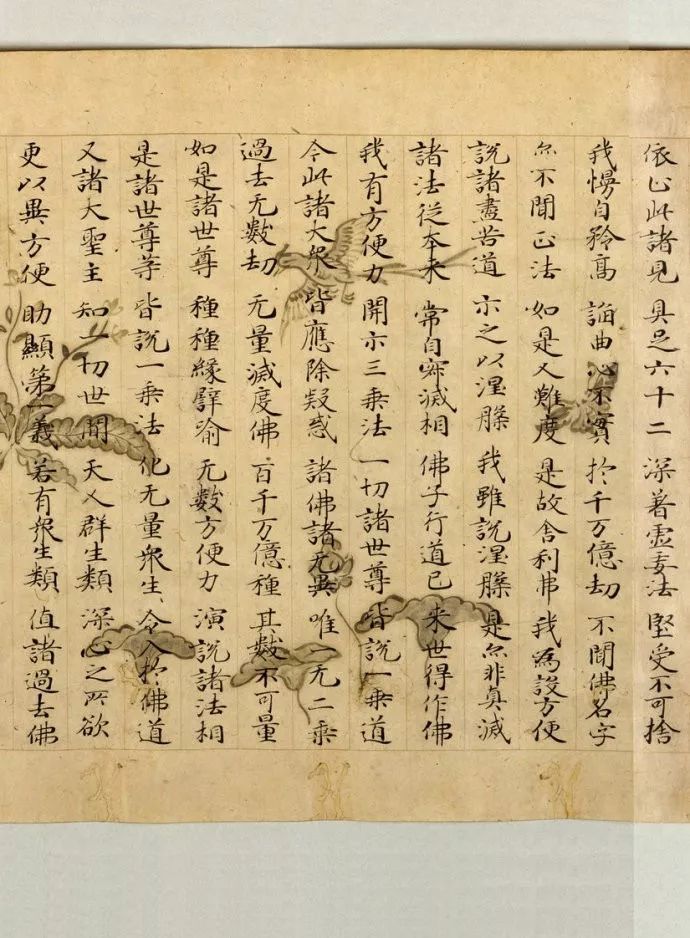 依止此諸見 具足六十二 深著虛妄法 堅受不可捨
我慢自矜高 諂曲心不實 於千万億劫 不聞佛名字
尒不聞正法 如是人難度 是故舍利弗 我為設方便
說諸盡苦道 示之以涅槃 我雖說涅槃 是尒非真滅
諸法從本来 常自寂滅相 佛子行道已 来世得作佛
我有方便力 開示三乘法 一切諸世尊 皆說一乘道
今此諸大眾 皆應除疑惑 諸佛語无異 唯一无二乘
過去无數劫 无量滅度佛 百千万億種 其數不可量
如是諸世尊 種種緣譬喻 无數方便力 演說諸法相
是諸世尊等 皆說一乘法 化无量眾生 令入於佛道
又諸大聖主 知一切世間 天人群生類 深心之所欲
更以異方便 助顯第一義 若有眾生類 值諸過去佛